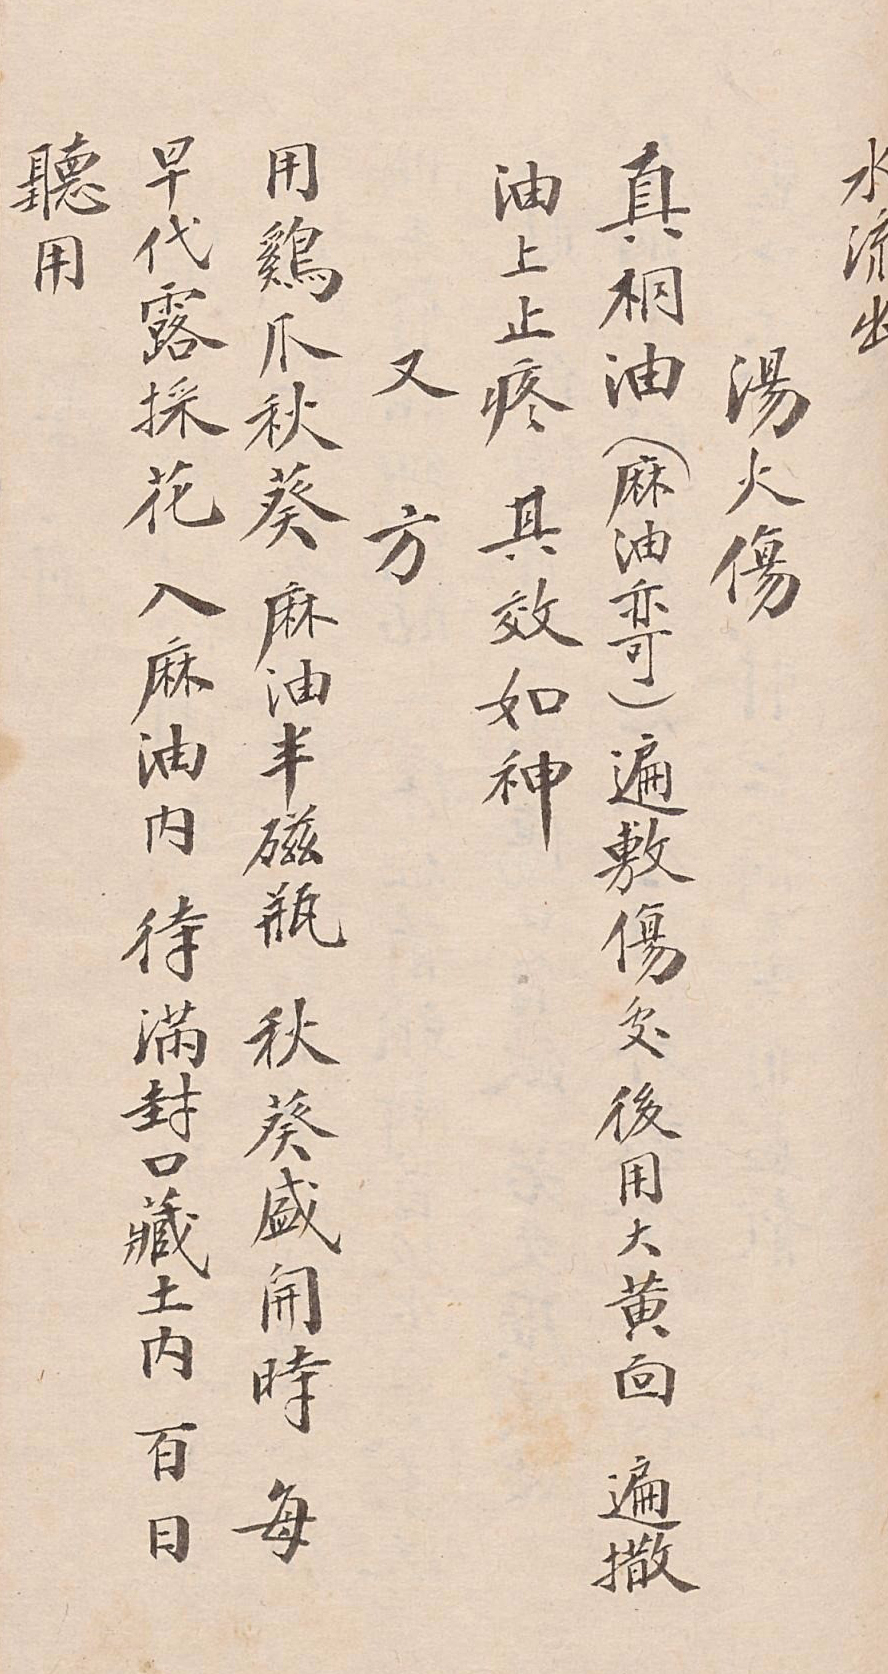 水流出
湯火傷
真桐油（麻油亦可）遍敷傷处後用大黄面 遍撒
油上止疼 其效如神
又方
用鷄爪秋葵 麻油半磁瓶 秋葵盛開時 每
早代露採花 入麻油内 待滿封口藏土内 百日
聽用